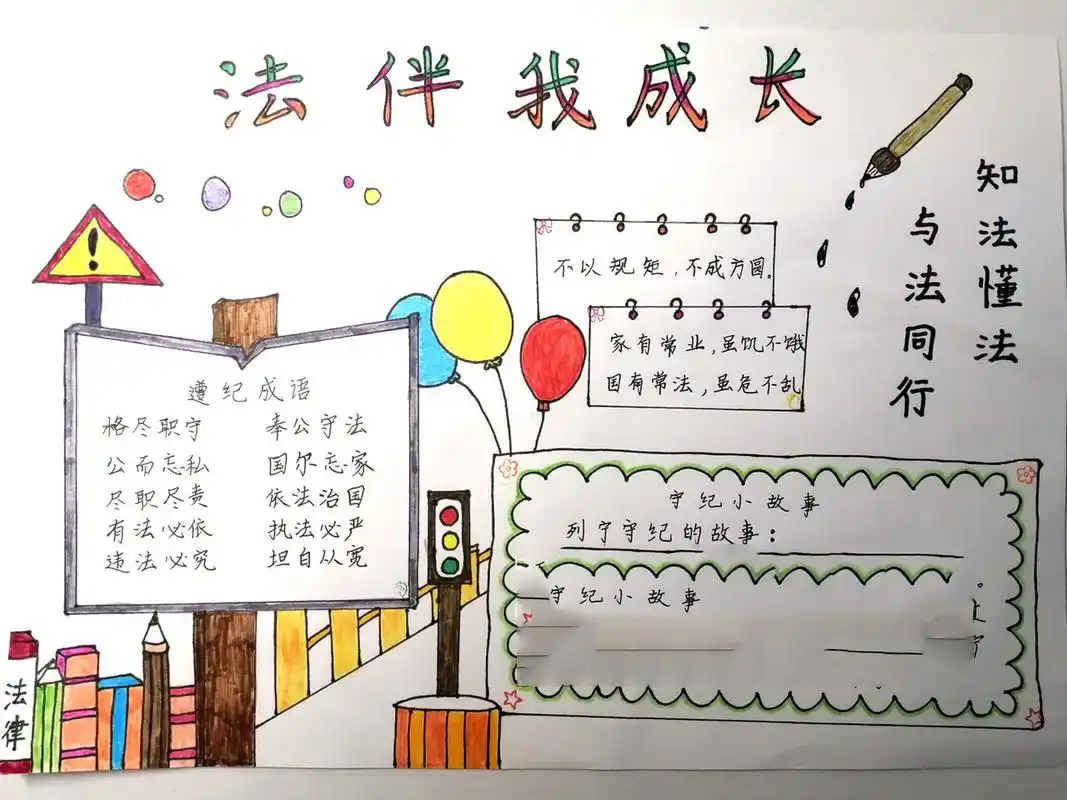 法伴我成长
知法懂法
与法同行
不以规矩,不成方圆。
家有常业,虽饥不饿
国有常法,虽危不乱
遵纪成语
格尽职守 奉公守法
公而忘私 国尔忘家
尽职尽责 依法治国
有法必依 执法必严
违法必究 坦自从宽
守纪小故事
列宁守纪的故事:
守纪小故事
法律